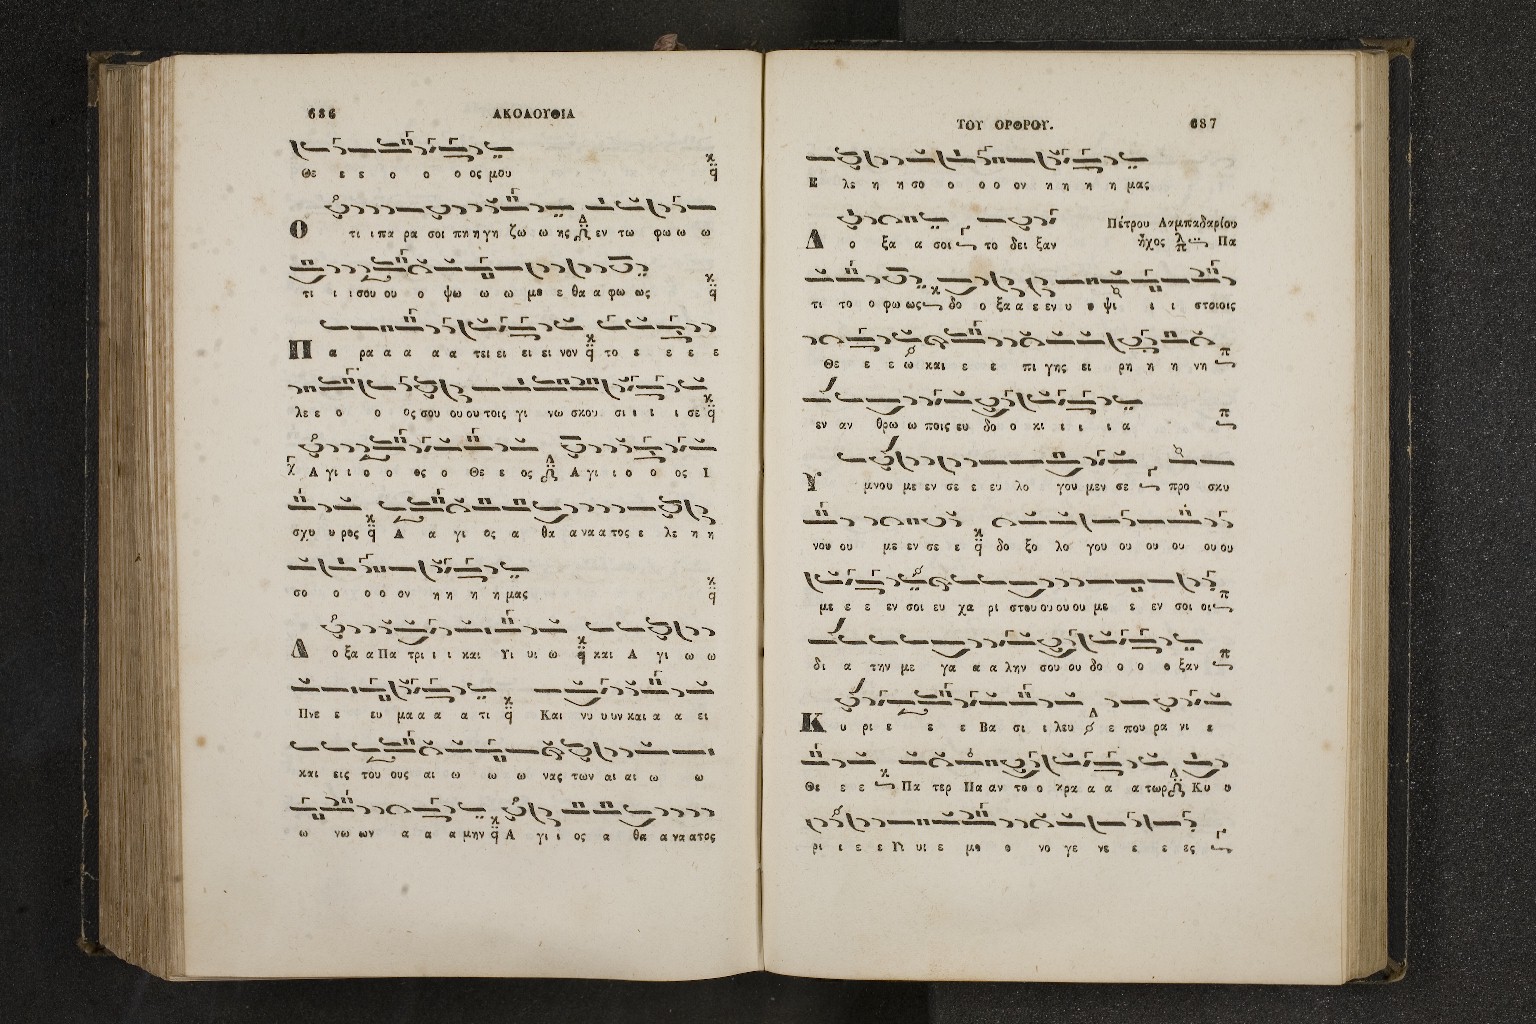 686 ΑΚΟΛΟΥΘΙΑ
Θε ε ε ο ο ο ος μου
Ο τι ι πα ρα σοι πη η γη ζω ω ης εν τω φω ω ω
τι ι ι σου ου ο ψω ω ω με ε θα α φω ως
Π α ρα α α α α τει ει ει ει ει νον το ε ε ε ε
λε ε ο ο ος σου ου ου τοις γι νω σκου σι ι ι ι σε
Α γι ι ο ο ος ο Θε ε ος Α γι ι ο ο ος Ι
σχυ υ ρος Α α γι ος α θα α να α τος ε λε η η
σο ο ο ο ον η η η η μας
Δ ο ξα α Πα τρι ι ι και Υι υι ω και Α γι ω ω
Πνε ε ευ μα α α α τι Και νυ υ υν και α α ει
και εις του ους αι ω ω ω νας των αι αι ω ω
ω νω ων α α α μην Α γι ι ος α θα α να α τος
ΤΟΥ ΟΡΘΡΟΥ. 687
Ε λε η η σο ο ο ο ον η η η η μας
Πέτρου Λαμπαδαρίου
Δ ο ξα α σοι το δει ξαν ἦχος Πα
τι το ο φω ως δο ο ξα α ε εν υ υ ψι ι ι στοιοις
Θε ε ε ω και ε ε πι γης ει ρη η η νη
εν αν θρω ω ποις ευ δο ο κι ι ι ι α
Υ μνου με εν σε ε ευ λο γου μεν σε προ σκυ
νου ου με εν σε ε δο ξο λο γου ου ου ου ου ου
με ε ε εν σοι ευ χα ρι στου ου ου ου με ε εν σοι οι
δι α την με γα α α λην σου ου δο ο ο ο ξαν
Κ υ ρι ε ε ε Βα σι ι λευ ε που ρα νι ε
Θε ε ε Πα τερ Πα αν το ο κρα α α α τωρ Κυ υ
ρι ι ε ε Υι υι ε μο ο νο γε νε ε ε ες